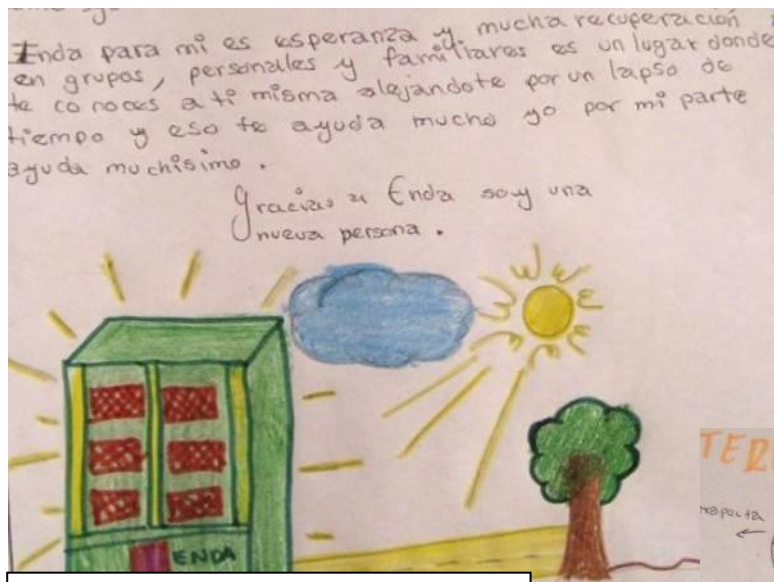 Enda para mi es esperanza y mucha recuperación
en grupos, personales y familiares es un lugar donde
te conoces a ti misma alejandote por un lapso de
tiempo y eso te ayuda mucho yo por mi parte
ayuda muchisimo.
Gracias a Enda soy una
nueva persona.
ENDA
TER